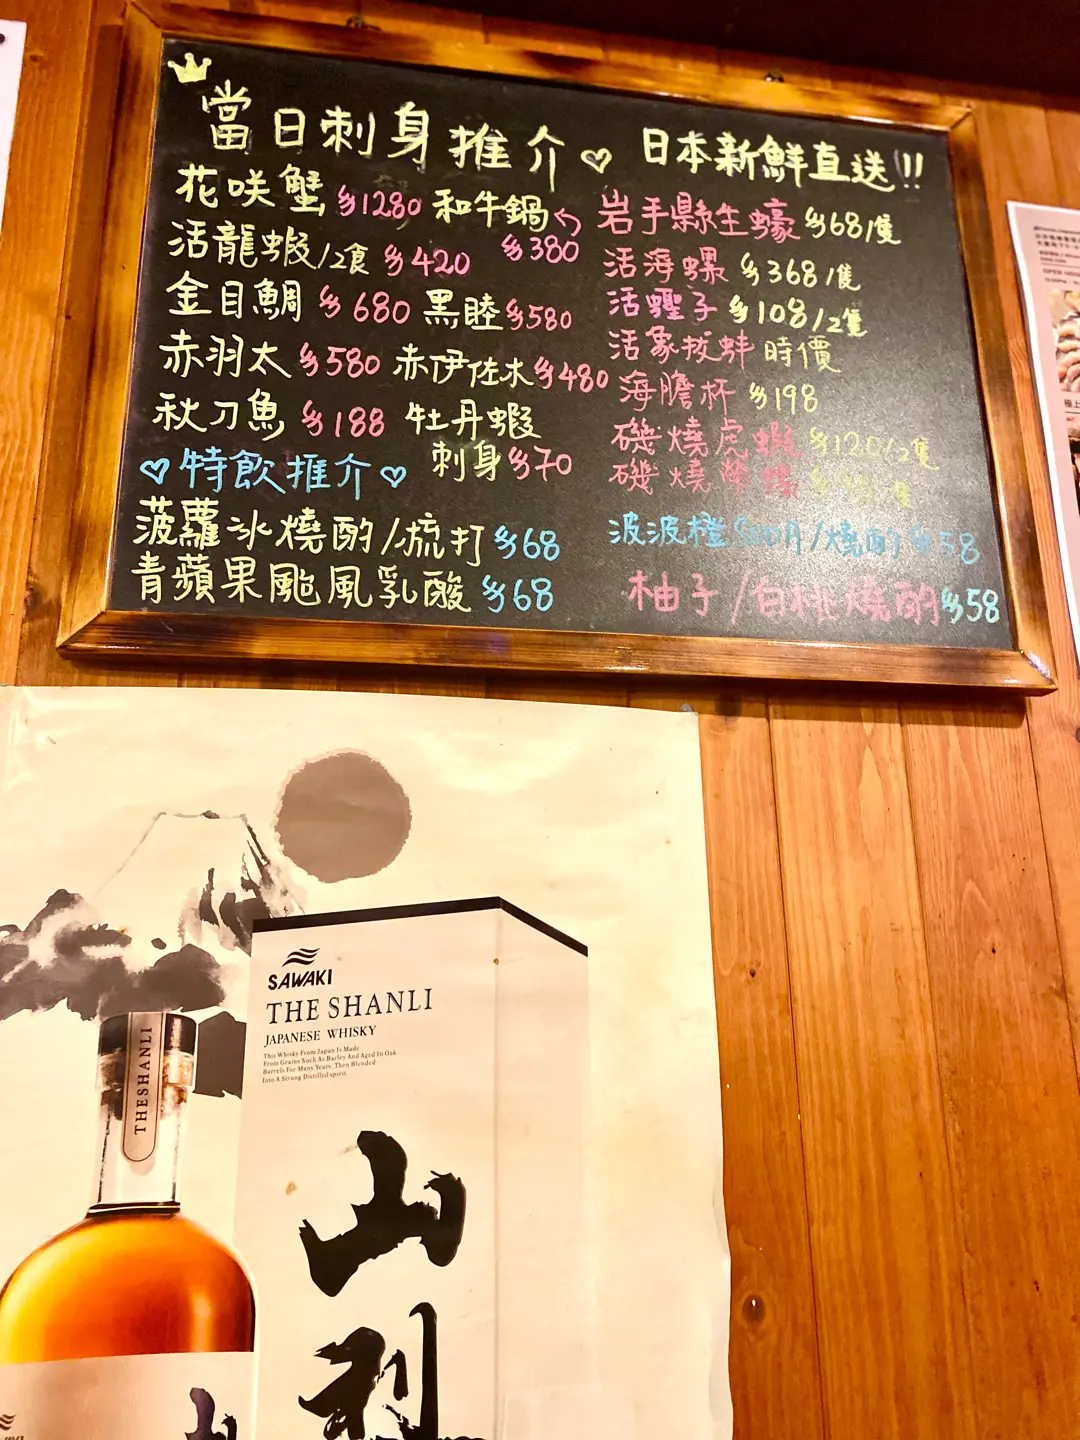 當日刺身推介♡ 日本新鮮直送!!
花咲蟹 $1280 和牛鍋
$380
活龍蝦/2食 $420
金目鯛 $680 黑睦 $580
赤羽太 $580 赤伊佐木 $480
秋刀魚 $188 牡丹蝦
刺身 $70
岩手縣生蠔 $68/隻
活海螺 $368/隻
活蟶子 $108/2隻
活象拔蚌 時價
海膽杯 $198
磯燒虎蝦 $120/2隻
磯燒榮螺
♡特飲推介♡
菠蘿冰燒酌/梳打 $68
青蘋果颱風乳酸 $68
波波橙 /燒酌 $58
柚子/白桃燒酌 $58
SAWAKI
THE SHANLI
JAPANESE WHISKY
This Whisky From Japan Is Made
From Grains Such As Barley And Aged In Oak
Barrels For Many Years. Then Blended
Into A Strong Distilled spirit.
THESHANLI
山
OPEN